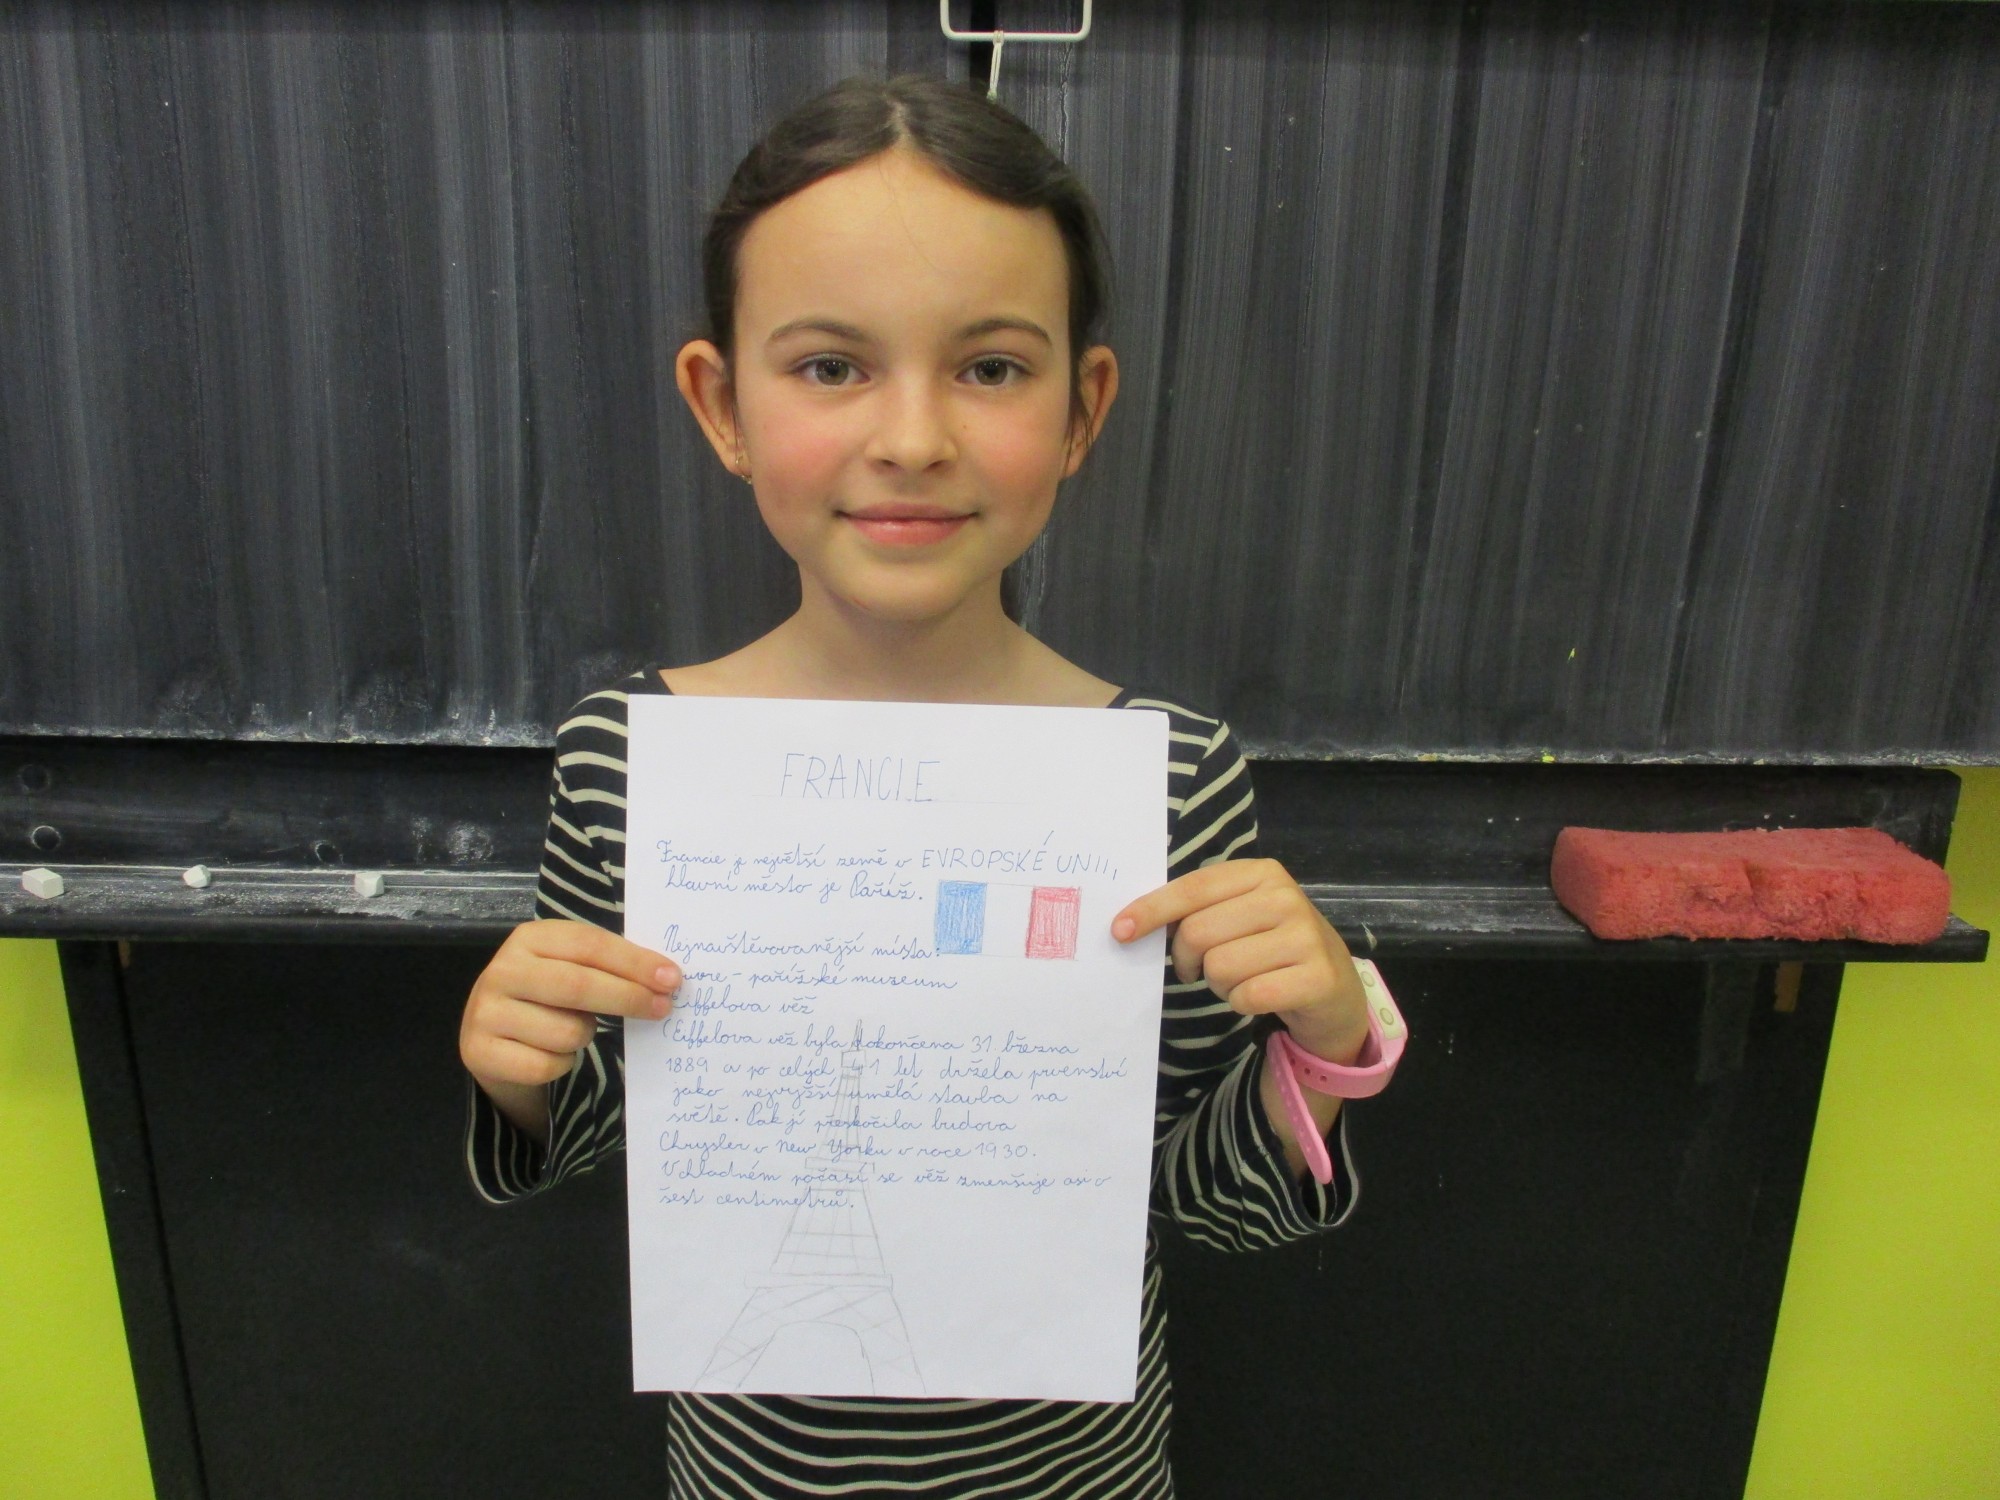 FRANCIE
Francie je největší země v EVROPSKÉ UNII,
hlavní město je Paříž.
Nejnavštěvovanější místa:
uvre - pařížské muzeum
Eiffelova věž
(Eiffelova věž byla dokončena 31. března
1889 a po celých 41 let držela prvenství
jako nejvyšší umělá stavba na
světě. Pak jí přeskočila budova
Chrysler v New Yorku v roce 1930.
V chladném počasí se věž zmenšuje asi o
šest centimetrů.